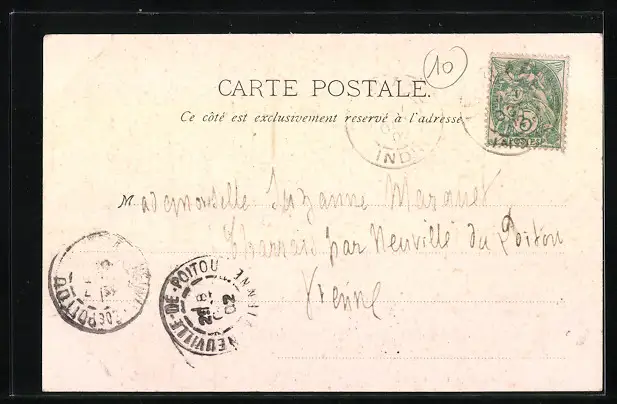 10
CARTE POSTALE.
Ce côté est exclusivement reservé à l'adresse
INDR
5
Mademoiselle Suzanne Marquet
par Neuville du Poitou
Vienne
NEUVILLE-DE-POITOU VIENNE
02